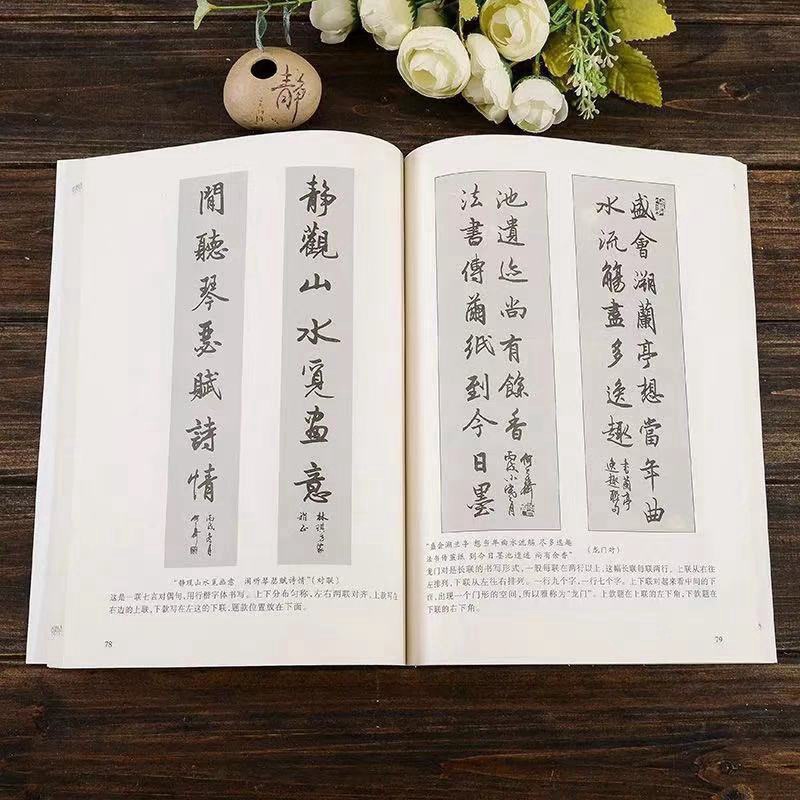 静
静觀山水覓畫意
閒聽琴瑟賦詩情
丙戌冬月
“静观山水觅画意 闲听琴瑟赋诗情”(对联)
这是一联七言对偶句,用行楷字体书写。上下分布匀称,左右两联对齐。上款写在
右边的上联,下款写在左这的下联,题款位置放在下面。
78
盛會溯蘭亭想當年曲
水流觴盡多逸趣
書蘭亭
逸趣聯句
法書傳繭紙到今日墨
池遺迹尚有餘香
“盛会溯兰亭 想当年曲水流觞 尽多逸趣
法书传茧纸 到今日墨池遗迹 尚有余香”
(龙门对)
龙门对是长联的书写形式,一般每联在两行以上,这幅长联每联两行。上联从右往
左排列,下联从左往右排列。一行九个字,一行七个字。上下联对起来看中间的下
面,出现一个门形的空间,所以雅称为“龙门”。上款题在上联的左下角,下款题在
下联的右下角。
79